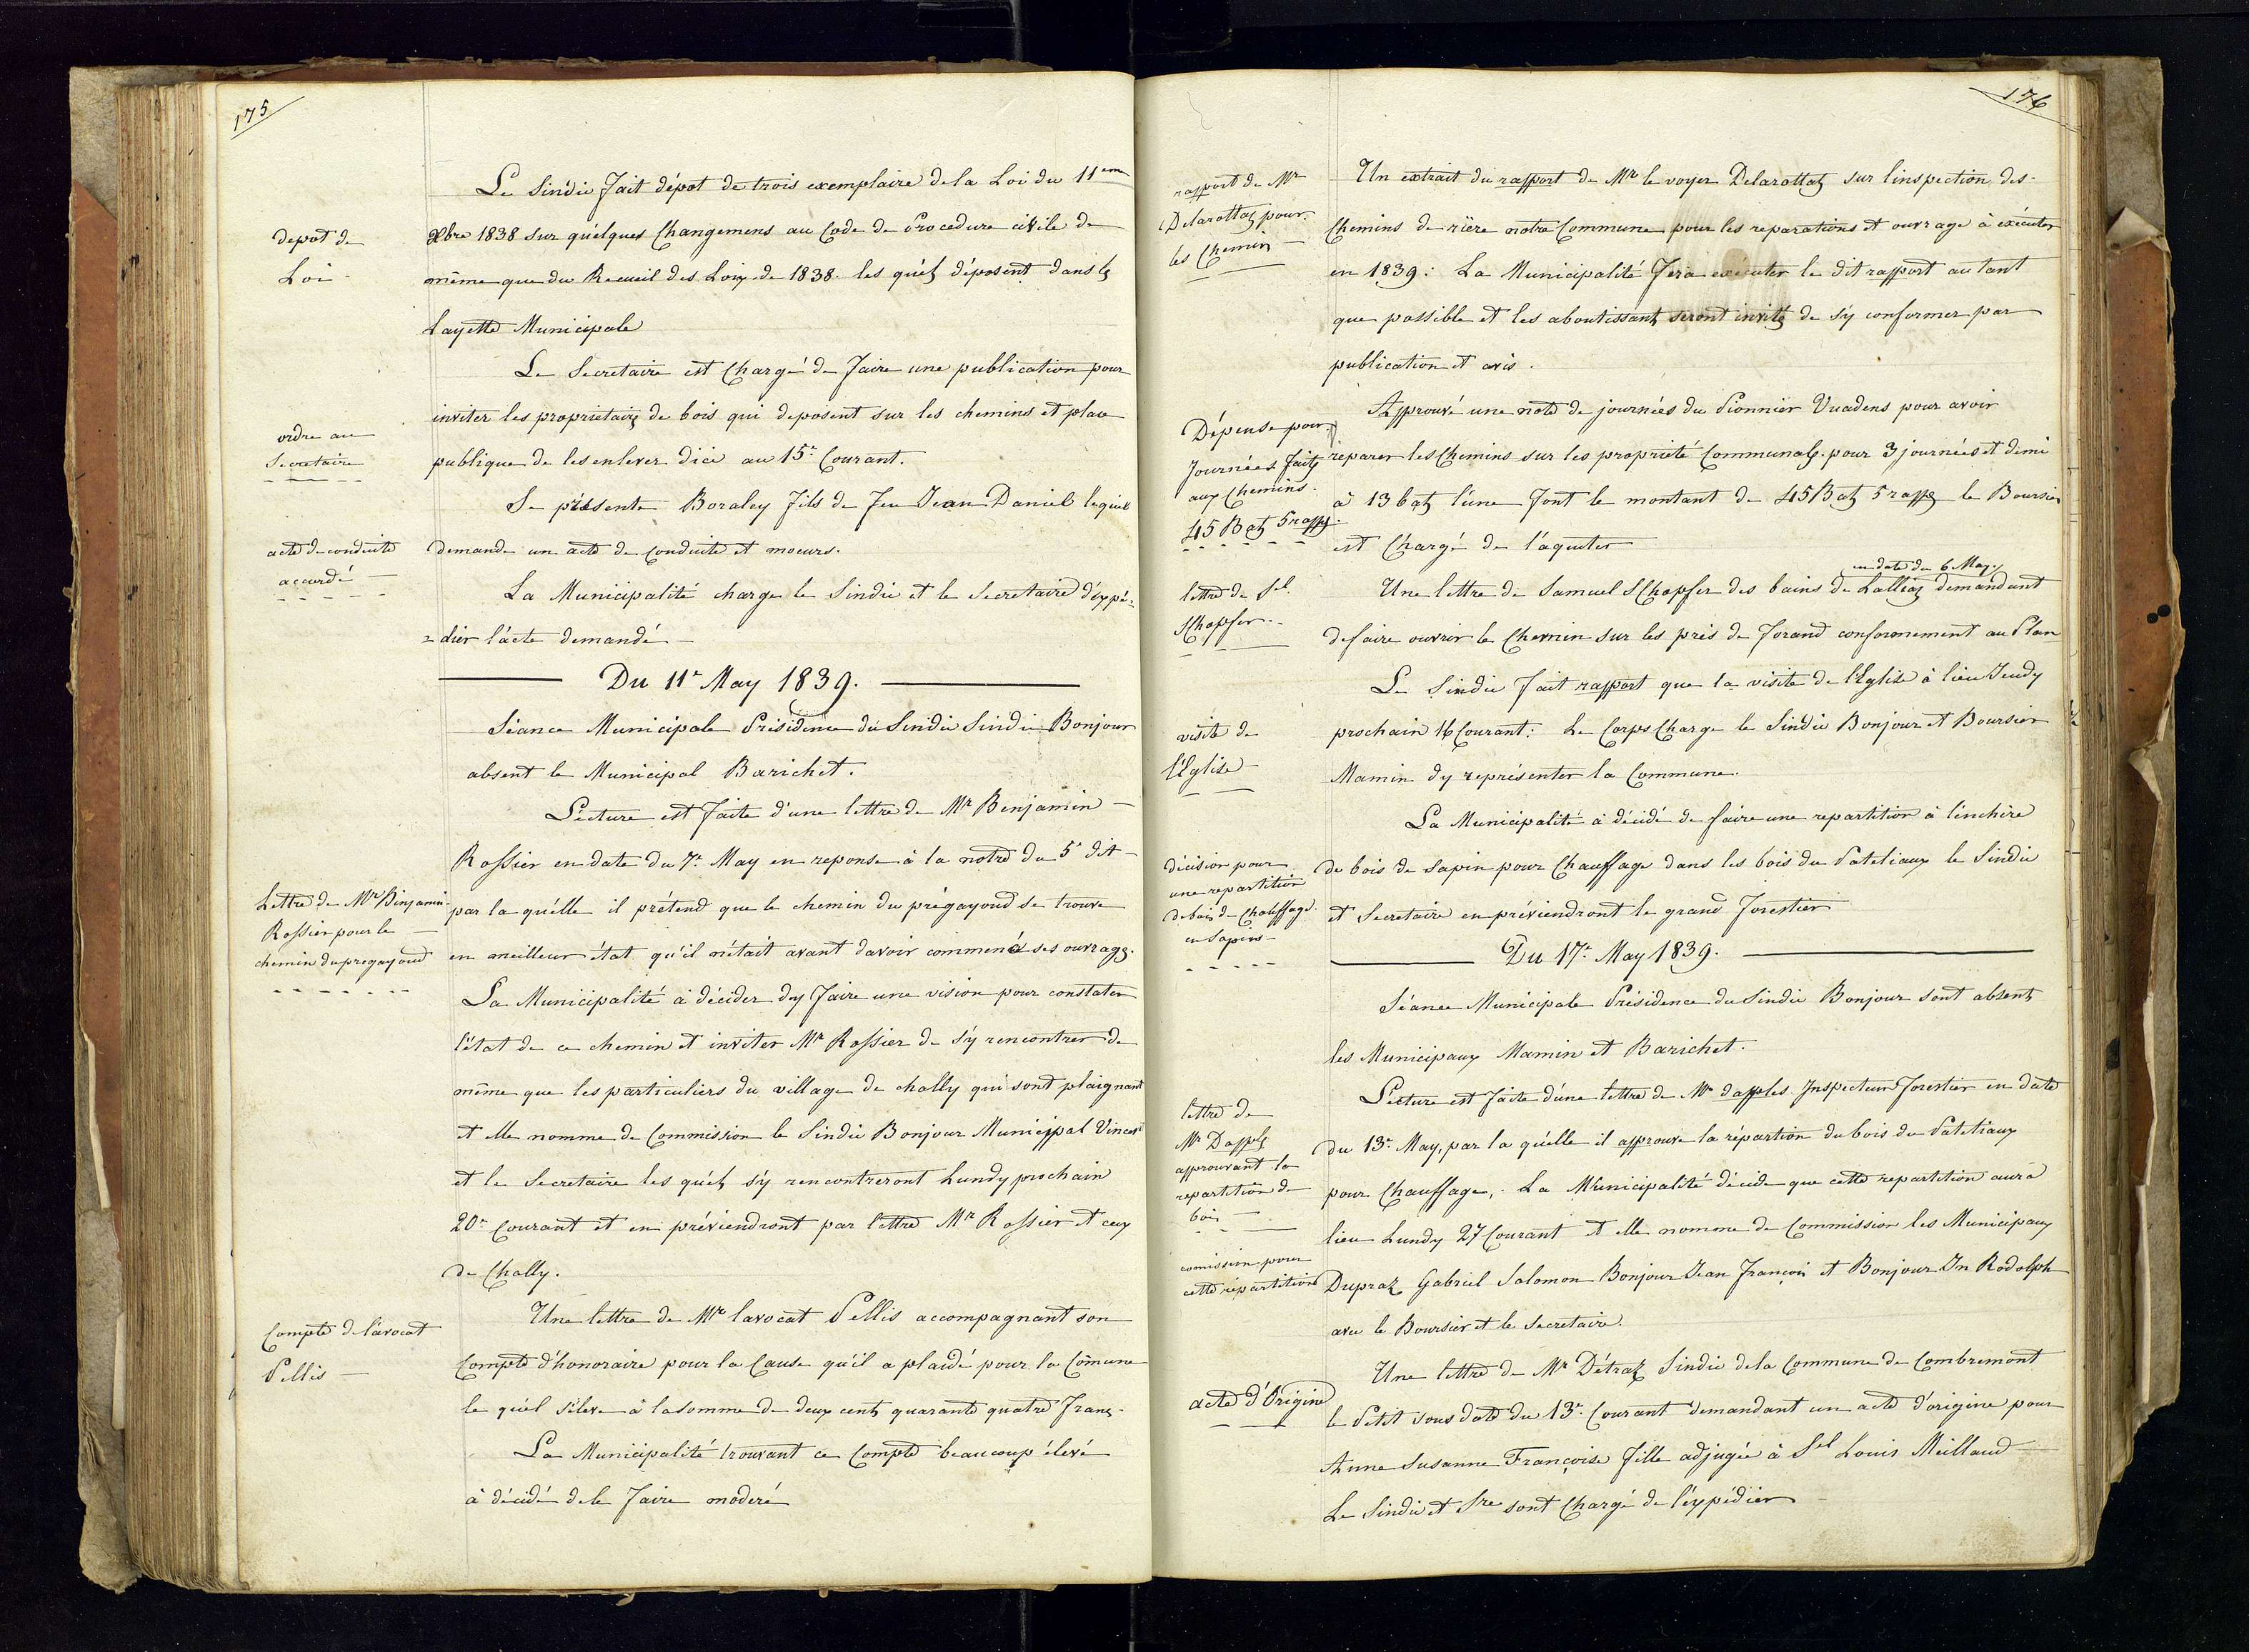 175
Le Sindic fait dépot de trois exemplaire de la Loi du 11eme
depot de
Loi
Xbre 1838 sur quelques Changemens au Code de Procedure civile de
même que du Recueil des Loix de 1838. les quels déposent dans la
Layette Municipale
Le Secretaire est Chargé de faire une publication pour
inviter les proprietaires de bois qui deposent sur les chemins et place
ordre au
Secretaire
publique de les enlever d'ici au 15e Courant.
Se présente Boraley fils de feu Jean Daniel lequel
acte de conduite
accordé
demande un acte de conduite et moeurs.
La Municipalité charge le Sindic et le Secretaire d'expé=
=dier l'acte demandé
Du 11e May 1839.
Séance Municipale Présidence du Sindic Sindic Bonjour
absent le Municipal Barichet.
Lecture est faite d'une lettre de Mr Benjamin
Rossier en date du 7e May en reponse à la notre du 5e dit
Lettre de Mr Binjamin
Rossier pour le
chemin du pregayoud
par la quelle il prétend que le chemin du prégayoud se trouve
en meilleur état qu'il n'était avant davoir commencé ses ouvrages.
La Municipalité à décider dy faire une vision pour constater
l'état de ce chemin et inviter Mr Rossier de s'y rencontrer de
même que les particuliers du village de chally qui sont plaignant
et elle nomme de Commission le Sindic Bonjour Municippal Vincent
et le Secretaire les quels s'y rencontreront Lundy prochain
20e courant et en préviendront par lettre Mr Rossier et ceux
de Chally.
Une lettre de Mr lavocat Pellis accompagnant son
Compte de l'avocat
Pellis
Compte d'honoraire pour la Cause qu'il a plaidé pour la Cômune
le quel s'éleve à la somme de deux cents quarante quatre francs.
La Municipalité trouvant ce Compte beaucoup élevé
à décidé de le faire moderé
176
rapport de Mr
Delarottaz pour
les Chemin
Un extrait du rapport de Mr le voyer Delarottaz sur l'inspection des
Chemins de rière notre Commune pour les reparations et ouvrage à exécuter
en 1839: La Municipalité fera exécuter le dit rapport au tant
que possible et les aboutissants seront invités de s'y conformer par
publication et avis.
Dépense pour
Journées faites
aux Chemins.
45 Batz 5 rapps.
Approuvé une note de journées du Pionnier Vuadens pour avoir
réparer les Chemins sur les propriété Communales. pour 3 journées et demi
à 13 batz l'une font le montant de 45 Batz 5 rapps le Boursier
est Chargé de l'aquiter
lettre de Sel
SChopfer
en date du 6 May
Une lettre de Samuel SChopfer des bains de Lalliaz demandant
de faire ouvrir le Chemin sur les prés de forand conformement au Plan
Le Sindic fait rapport que la visite de l'Eglise à lieu Jeudy
visite de
l'Eglise
prochain 16 Courant: Le Corps Charge le Sindic Bonjour et Boursier
Mamin dy représenter la Commune.
La Municipalité à décidé de faire une repartition à l'enchère
décision pour
une repartition
de bois de Chauffage
en Sapins
de bois de Sapin pour Chauffage dans les bois du Pateliaux le Sindic
et Secretaire en préviendront le grand forestier
Du 17e May 1839.
Séance Municipale Présidence du Sindic Bonjour sont absents
les Municipaux Mamin et Barichet.
Lecture est faite d'une lettre de Mr dapples Inspecteur forestier en date
lettre de
Mr Dapples
approuvant la
repartition de
bois
du 13e May, par la quelle il approuve la répartion du bois du Pateliaux
pour Chauffage, La Municipalité décide que cette repartition aura
lieu Lundy 27 Courant et elle nomme de Commission les Municipaux
comission pour
cette répartition
Dupraz Gabriel Salomon Bonjour Jean François et Bonjour Jn Rodolph
avec le Boursier et le Secretaire.
Une lettre de Mr Détraz Sindic de la Commune de Combremont
acte d'Origine
le Petit sous date du 13e Courant demandant un acte d'origine pour
Anne Susanne Françoise fille adjugée à Sel Louis Meillaud
Le Sindic et Sre sont Chargé de l'éxpédier